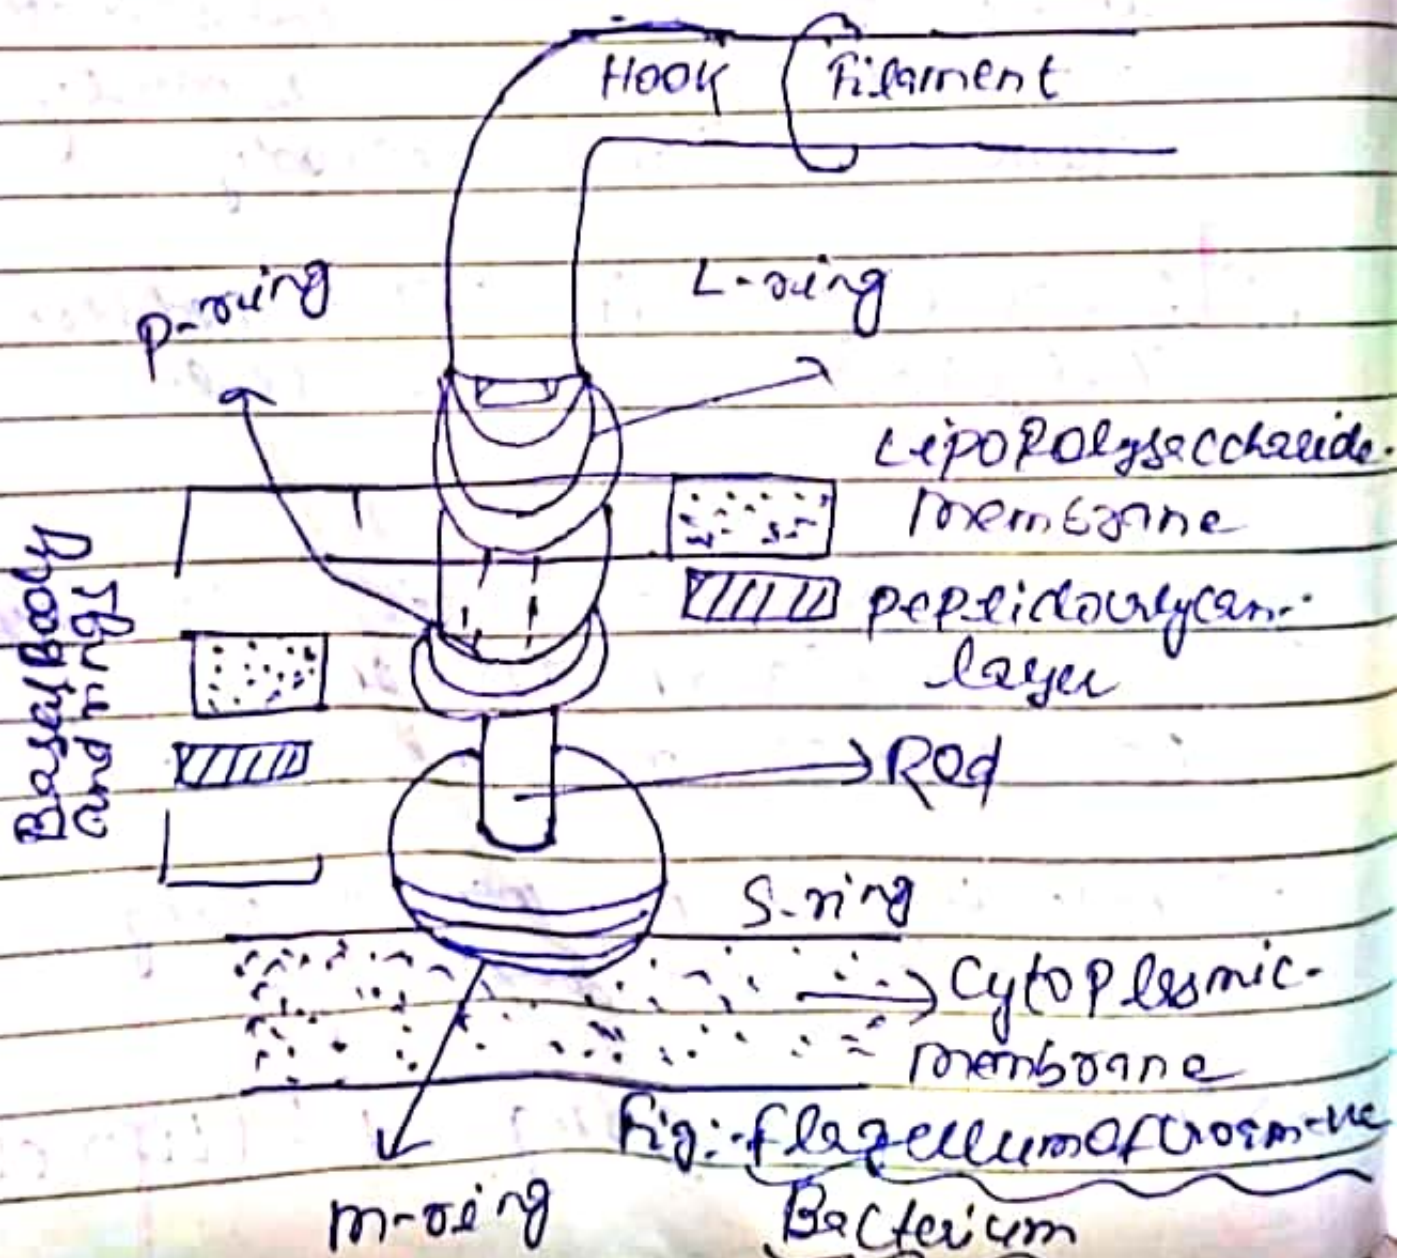 Hook
Filament
P-ring
L-ring
Lipopolysaccharide
membrane
peptidoglycan
layer
Basal Body
and rings
Rod
S-ring
Cytoplasmic
membrane
M-ring
Fig:- flagellum of Gram-ve
Bacterium